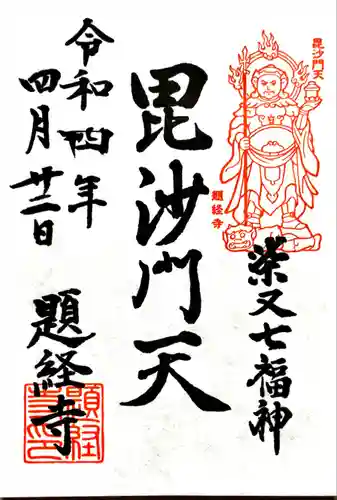 毘沙門天
題経寺
柴又七福神
毘沙門天
令和四年
四月廿二日
題経寺